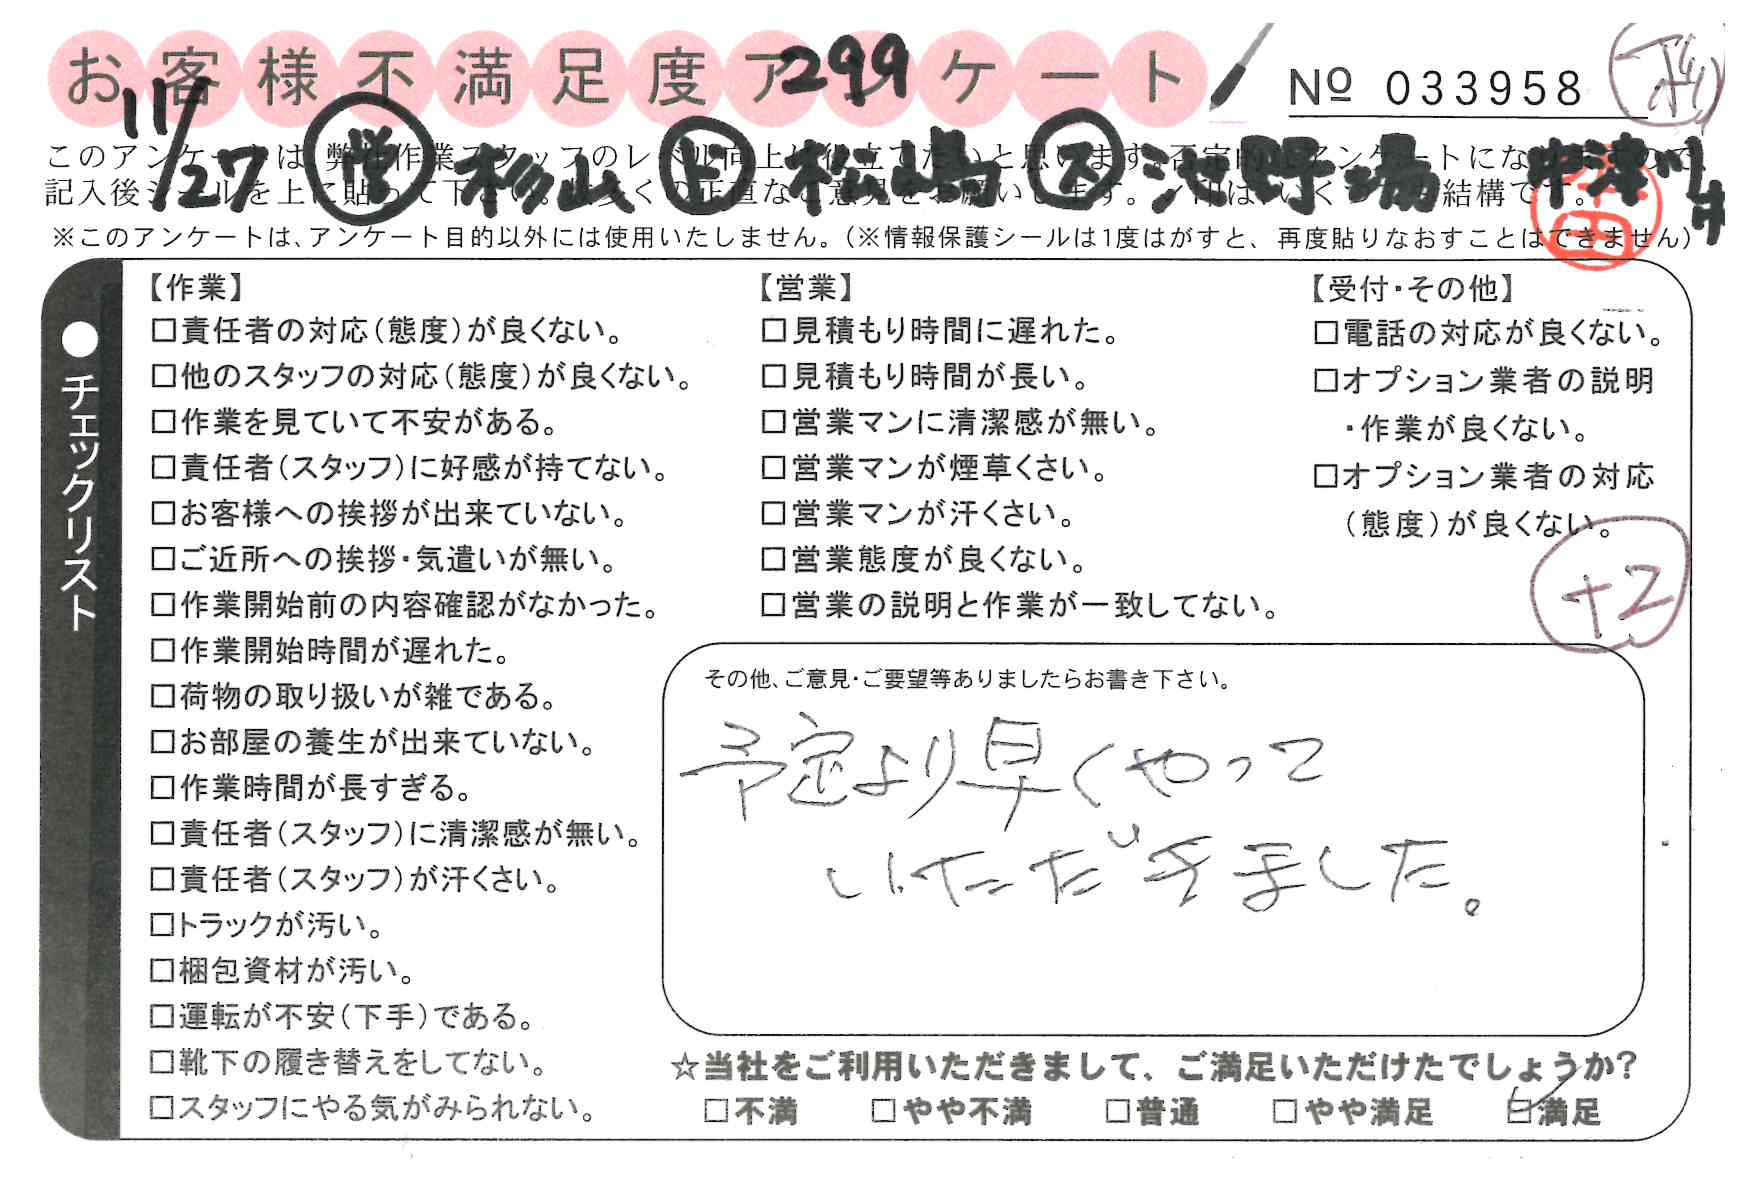 お客様不満足度アンケート
299
Nº 033958
11/27 営 杉山 下 松崎 ス 池野場 中津川
このアンケートは、弊社作業スタッフのレベル向上に役立てたいと思います。否定的なアンケートになりますので、
記入後シールを上に貼って下さい。数多くの正直なご意見をお願いします。✓印はいくつでも結構です。
※このアンケートは、アンケート目的以外には使用いたしません。（※情報保護シールは1度はがすと、再度貼りなおすことはできません）
●チェックリスト
【作業】
□責任者の対応（態度）が良くない。
□他のスタッフの対応（態度）が良くない。
□作業を見ていて不安がある。
□責任者（スタッフ）に好感が持てない。
□お客様への挨拶が出来ていない。
□ご近所への挨拶・気遣いが無い。
□作業開始前の内容確認がなかった。
□作業開始時間が遅れた。
□荷物の取り扱いが雑である。
□お部屋の養生が出来ていない。
□作業時間が長すぎる。
□責任者（スタッフ）に清潔感が無い。
□責任者（スタッフ）が汗くさい。
□トラックが汚い。
□梱包資材が汚い。
□運転が不安（下手）である。
□靴下の履き替えをしてない。
□スタッフにやる気がみられない。
【営業】
□見積もり時間に遅れた。
□見積もり時間が長い。
□営業マンに清潔感が無い。
□営業マンが煙草くさい。
□営業マンが汗くさい。
□営業態度が良くない。
□営業の説明と作業が一致してない。
【受付・その他】
□電話の対応が良くない。
□オプション業者の説明
・作業が良くない。
□オプション業者の対応
（態度）が良くない。
+2
その他、ご意見・ご要望等ありましたらお書き下さい。
予定より早くやって
いただきました。
☆当社をご利用いただきまして、ご満足いただけたでしょうか？
□不満 □やや不満 □普通 □やや満足 ☑満足